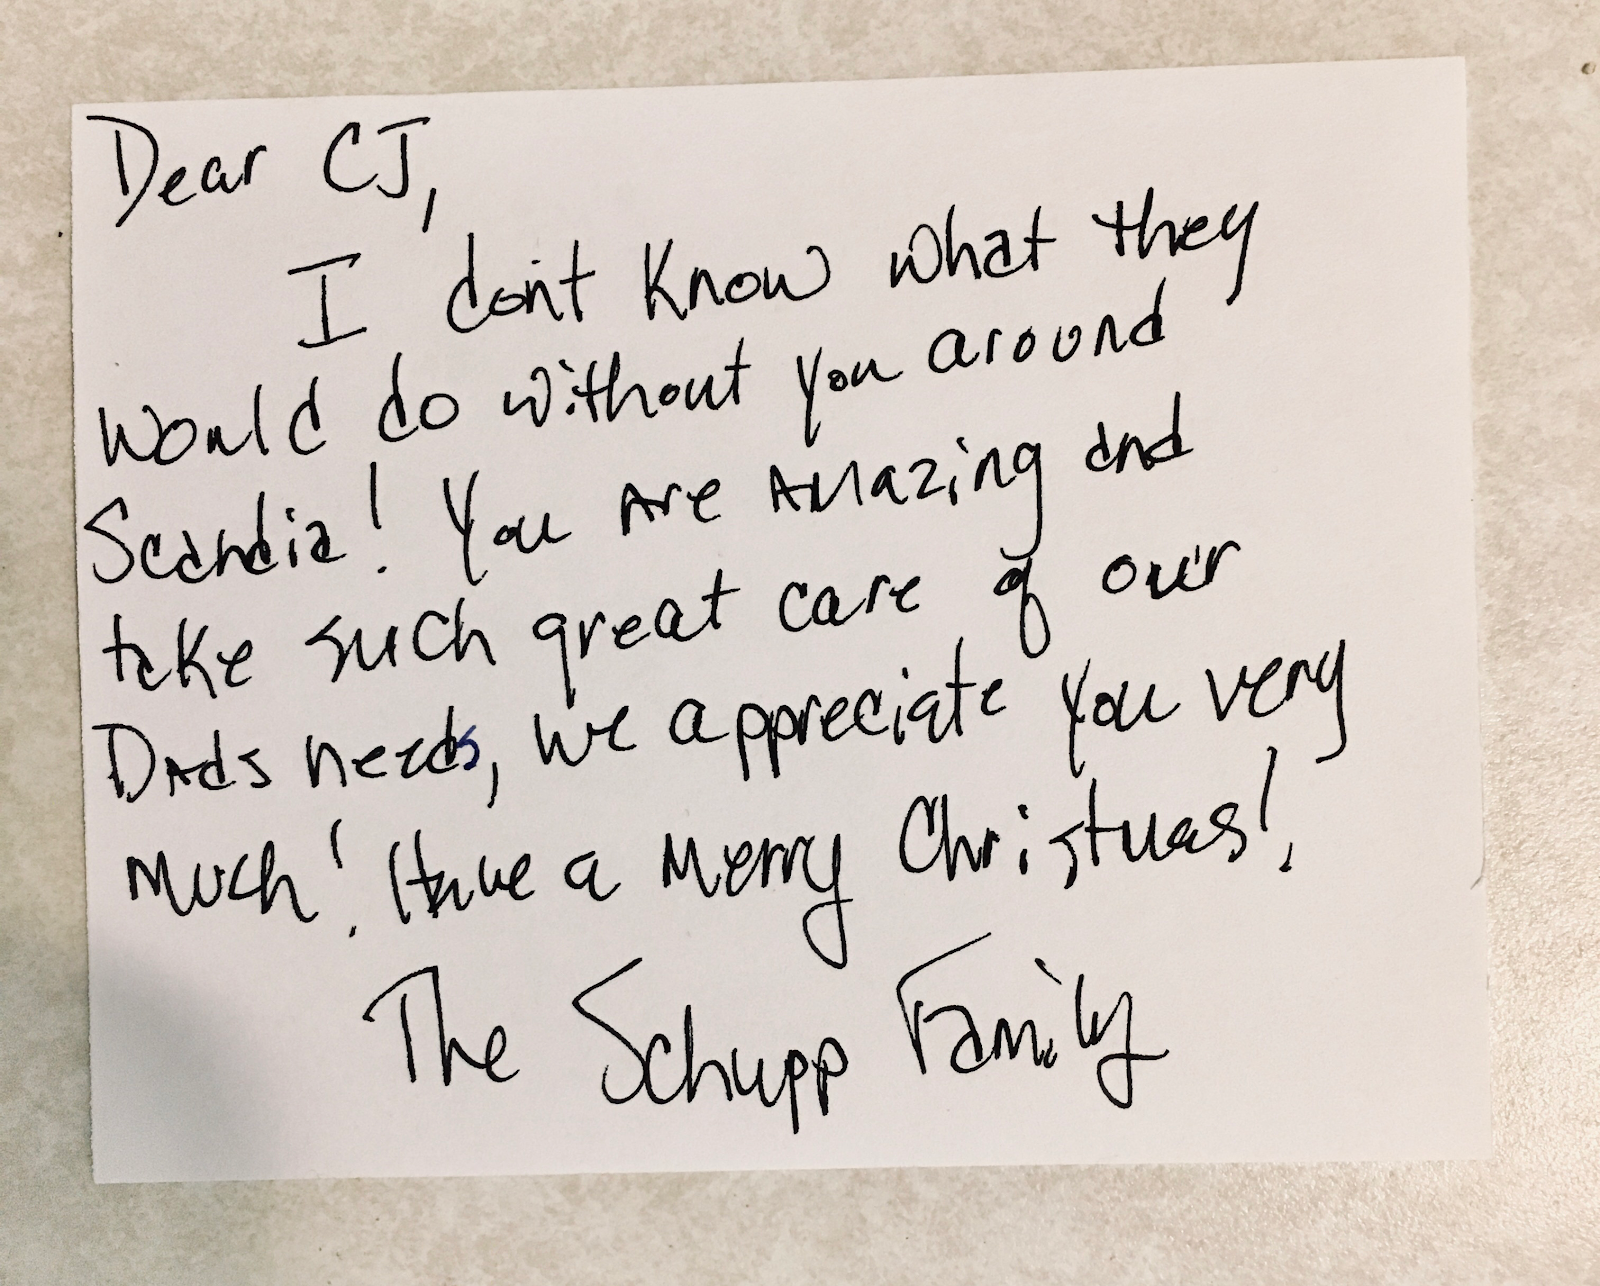 Dear CJ,
I don't know what they
would do without you around
Scandia! You are amazing and
take such great care of our
Dads needs, we appreciate you very
much! Have a Merry Christmas!
The Schupp Family